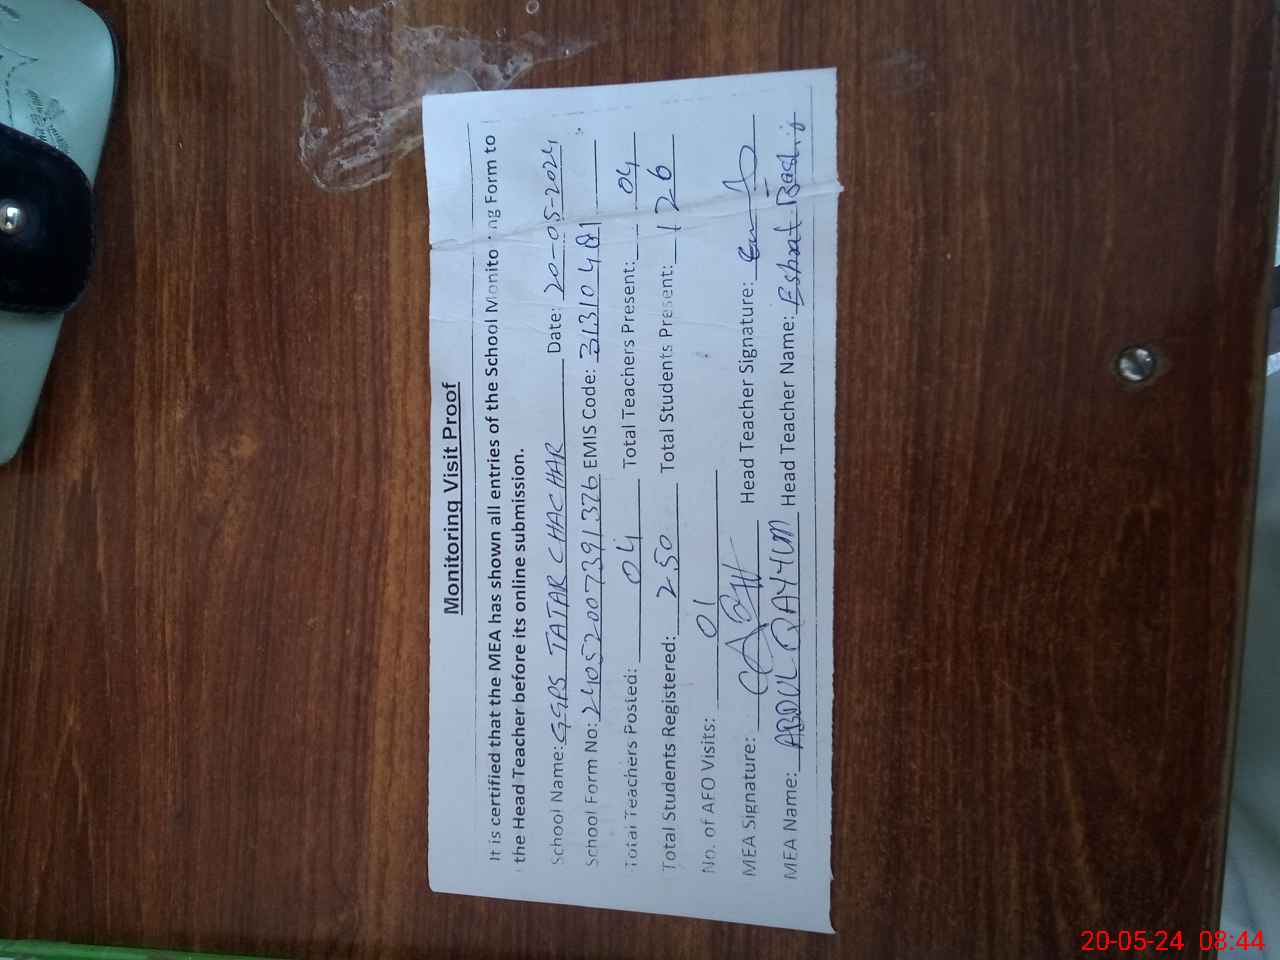 Monitoring Visit Proof
It is certified that the MEA has shown all entries of the School Monito ng Form to
the Head Teacher before its online submission.
School Name: GGPS TATAR CHACHAR Date: 20-05-2024
School Form No: 24052007391376 EMIS Code: 31310481
Total Teachers Posted: 04 Total Teachers Present: 04
Total Students Registered: 250 Total Students Present: 126
No. of AFO Visits: 01
MEA Signature: Head Teacher Signature:
MEA Name: ABDUL QAYYUM Head Teacher Name: Eshrat Bashir
20-05-24 08:44